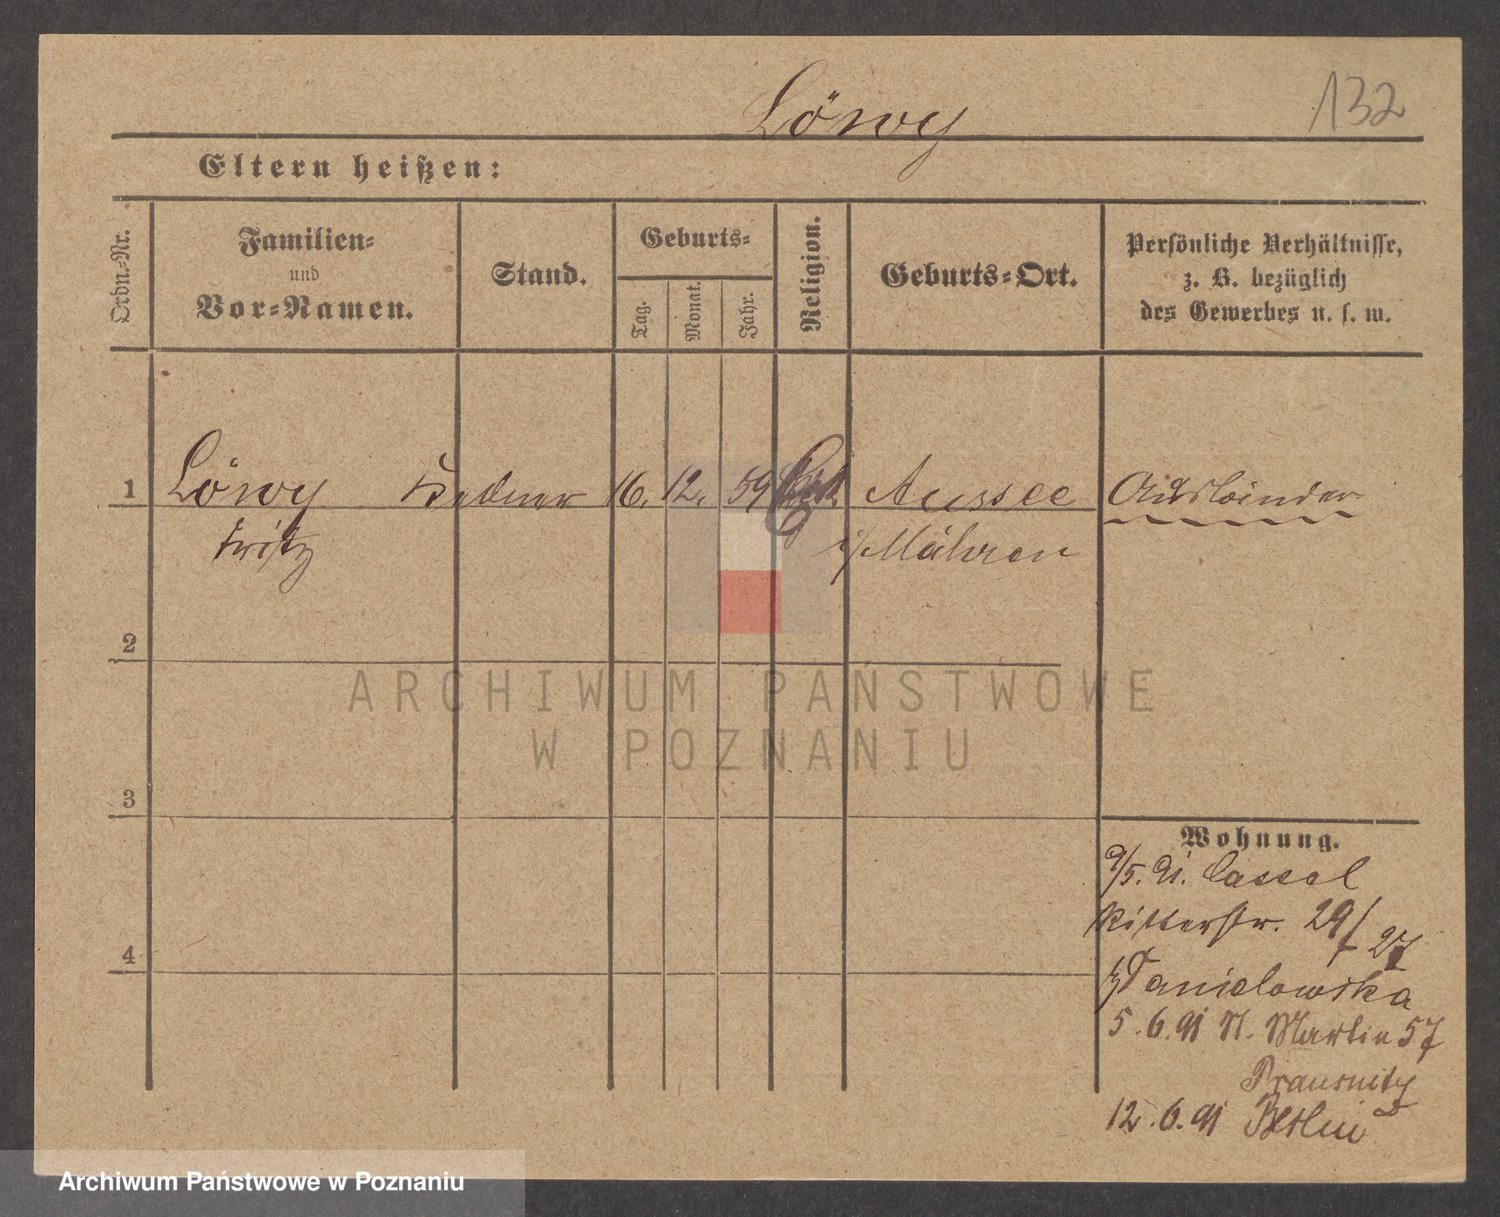 Löwy
132
Eltern heißen:
Ordn.-Nr.
Familien-
und
Vor-Namen.
Stand.
Geburts-
Tag.
Monat.
Jahr.
Religion.
Geburts-Ort.
Persönliche Verhältnisse,
z. B. bezüglich
des Gewerbes u. s. w.
1 Löwy 16. 12. 59 Aussee Ausländer
Fritz i/Mähren
2
3
4
Wohnung.
9/5. 91. Cassel
Ritterstr. 29/27
Danielowska
5.6.91 St. Martin 57
Prausnitz
12.6.91 Berlin
ARCHIWUM PAŃSTWOWE
W POZNANIU
Archiwum Państwowe w Poznaniu